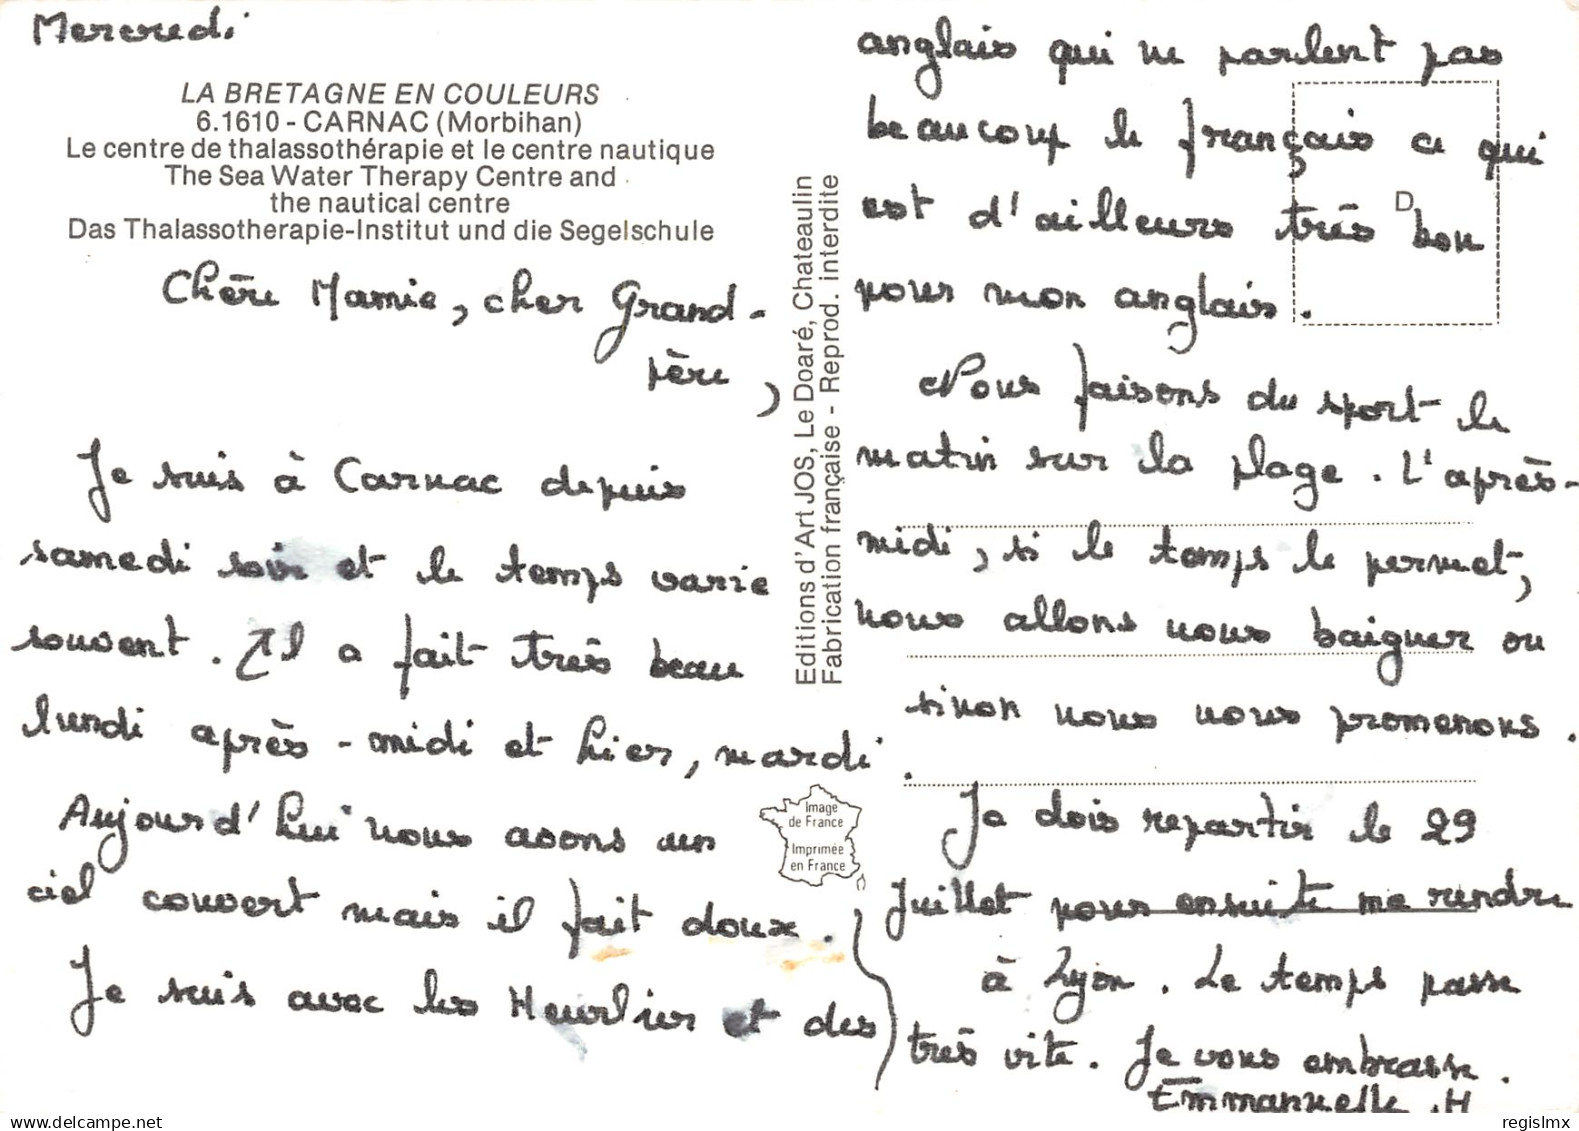 Mercredi
LA BRETAGNE EN COULEURS
6.1610 - CARNAC (Morbihan)
Le centre de thalassothérapie et le centre nautique
The Sea Water Therapy Centre and
the nautical centre
Das Thalassotherapie-Institut und die Segelschule
Chère Mamie, cher Grand-
père,
Je suis à Carnac depuis
samedi soir et le temps varie
souvent. Il a fait très beau
lundi après-midi et hier, mardi.
Aujourd'hui nous avons un
ciel couvert mais il fait doux.
Je suis avec les Heurlier et des
Editions d'Art JOS, Le Doaré, Chateaulin
Fabrication française - Reprod. interdite
Image
de France
Imprimée
en France
anglais qui ne parlent pas
beaucoup le français ce qui
est d'ailleurs très bon
D
pour mon anglais.
Nous faisons du sport le
matin sur la plage. L'après-
midi, si le temps le permet,
nous allons nous baigner ou
sinon nous nous promenons.
Je dois repartir le 29
Juillet pour ensuite me rendre
à Lyon. Le temps passe
très vite. Je vous embrasse.
Emmanuelle .H
regislmx